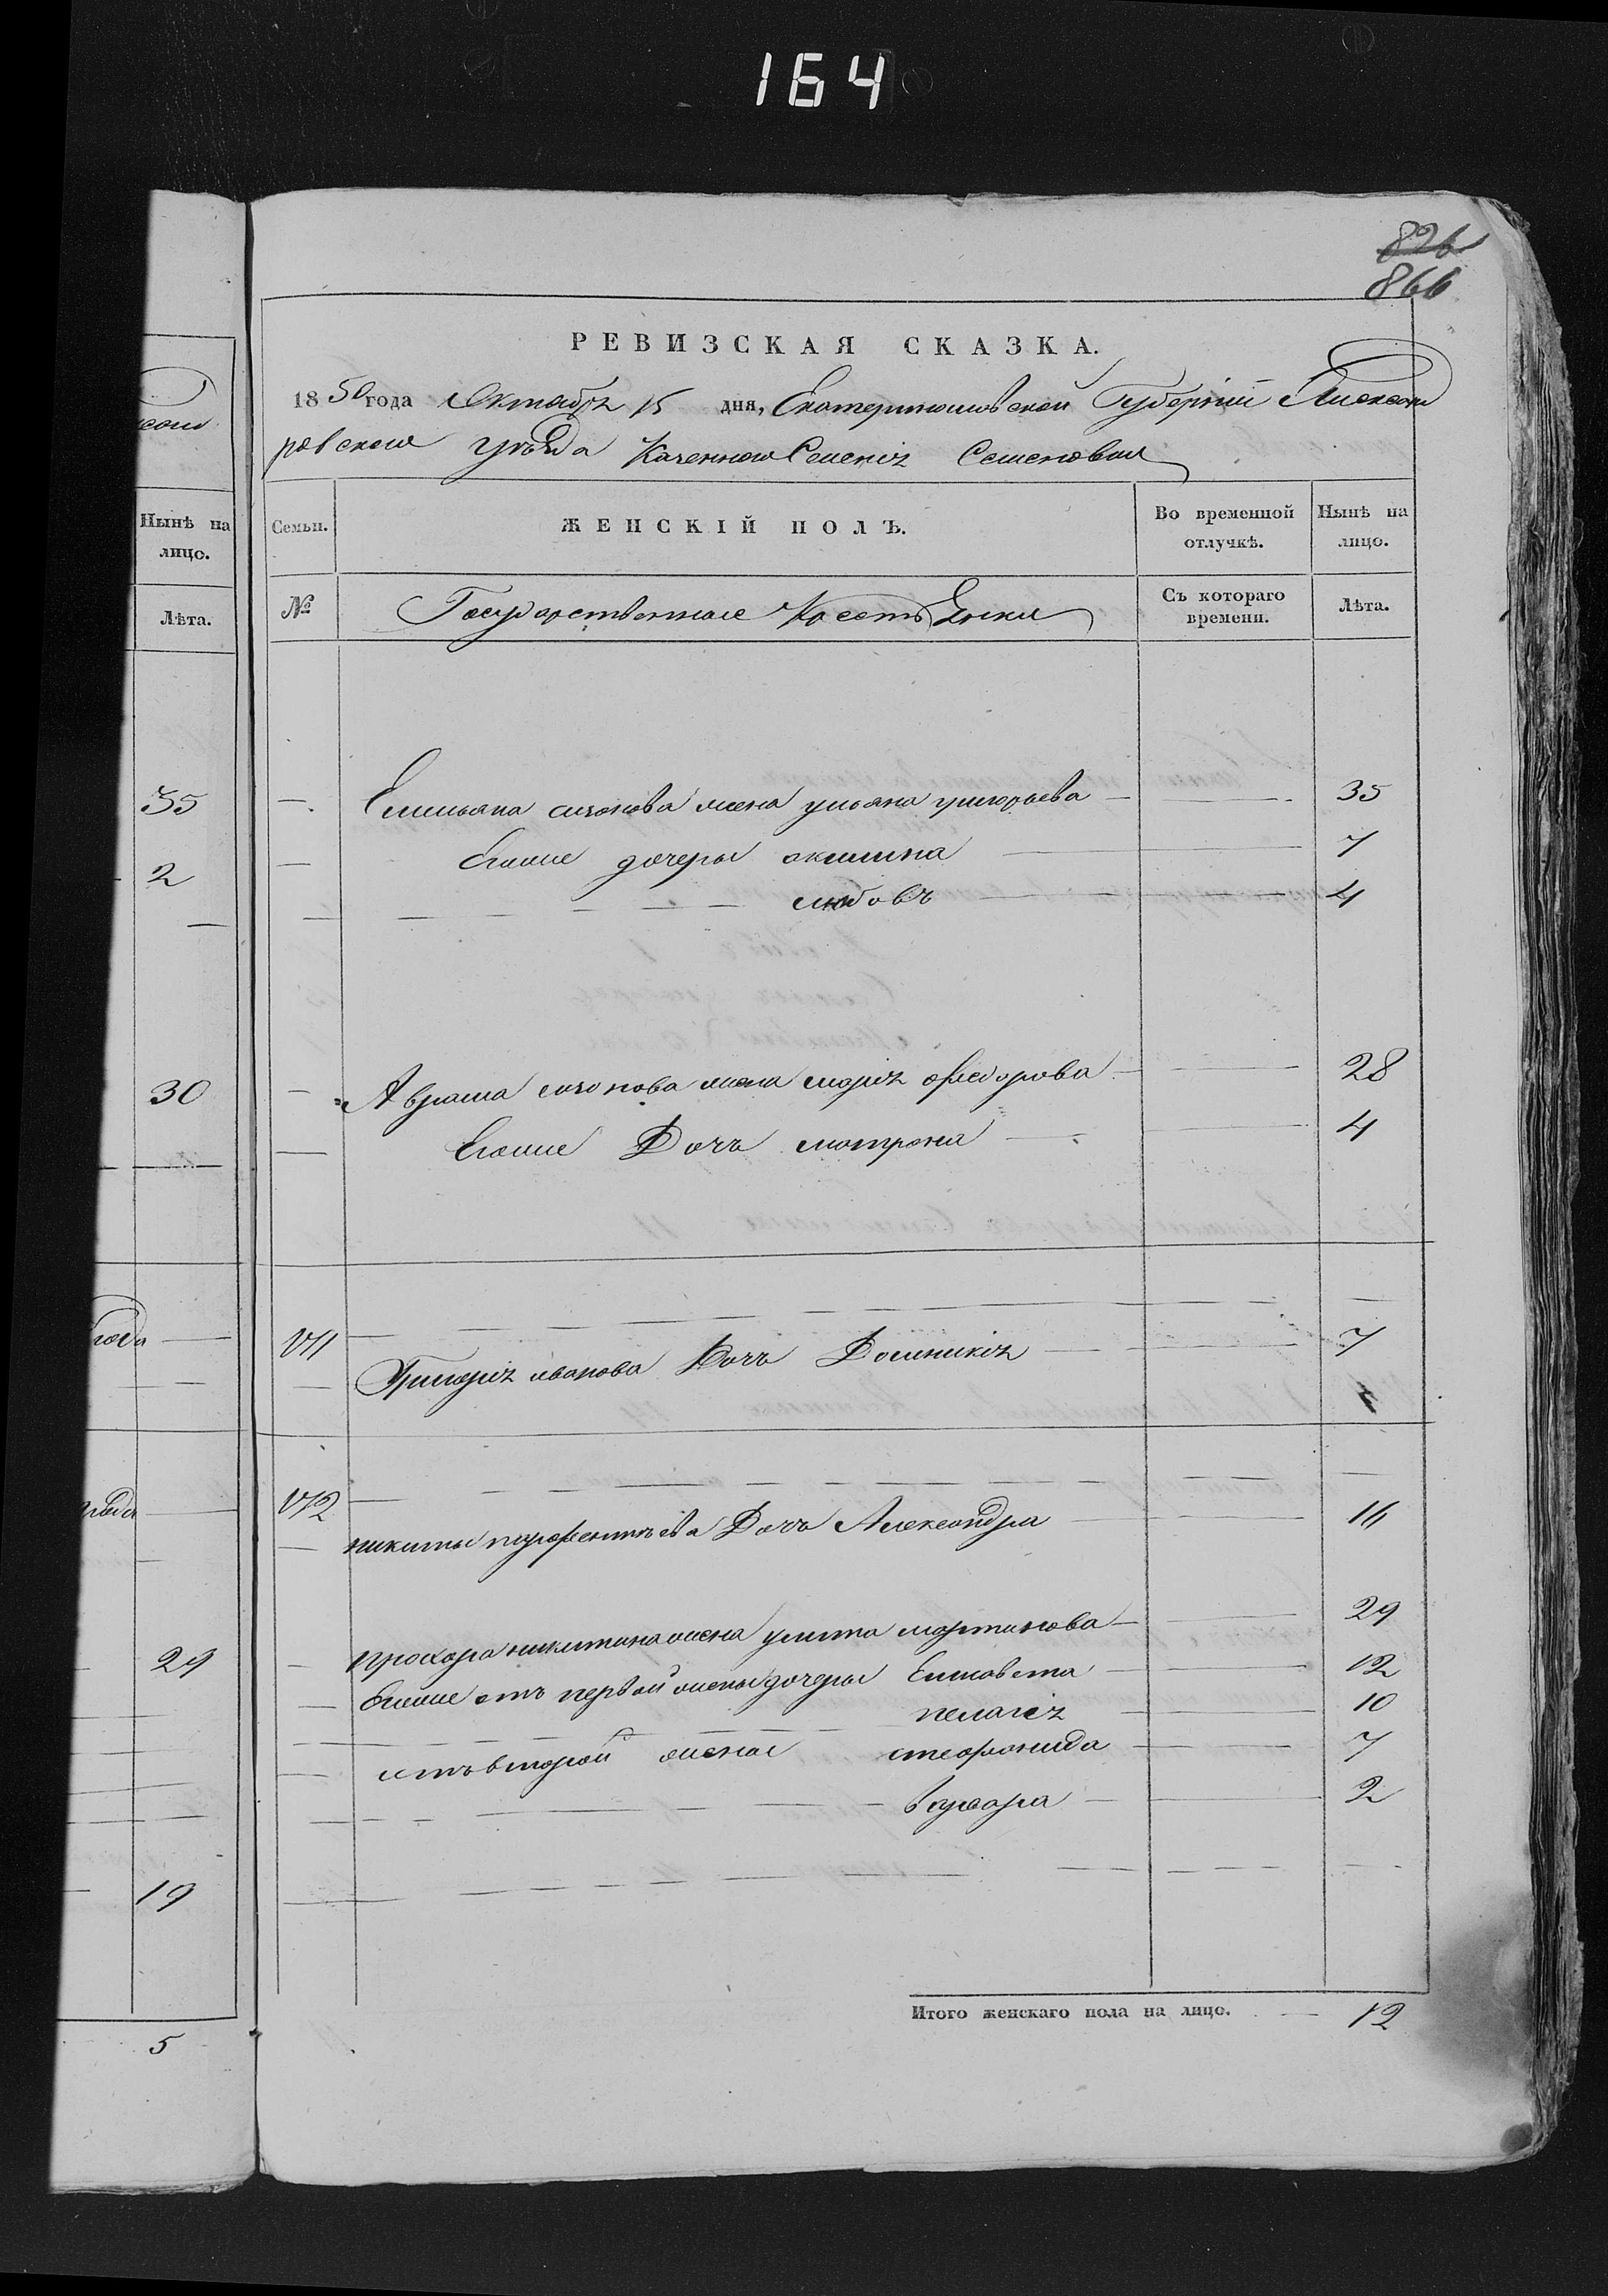 164
826
866
РЕВИЗСКАЯ СКАЗКА.
1850 года Октября 15 дня, Екатеринославской Губерніи Александ
ровскаго уѣзда Казеннаго Селенія Семеновки
Нынѣ на лицо.
Лѣта.
35
2
30
года
29
19
5
Семьи. ЖЕНСКІЙ ПОЛЪ. Во временной отлучкѣ. Нынѣ на лицо.
№ Государственные Крестьянки Съ котораго времени. Лѣта.
Емельяна жена ульяна григорьева 35
Егоже дочеры акилина 7
любовъ 4
Аврама жена марія федорова 28
Егоже Дочь матрона 4
Григорія иванова Дочь Доминикія 7
никиты Дочь Александра 16
прохора никитина жена улита мартинова 29
Егоже отъ первой жены дочеры Елисавета 12
пелагія 10
отъ второй жены стефанида 7
варвара 2
Итого женскаго пола на лицо. 12